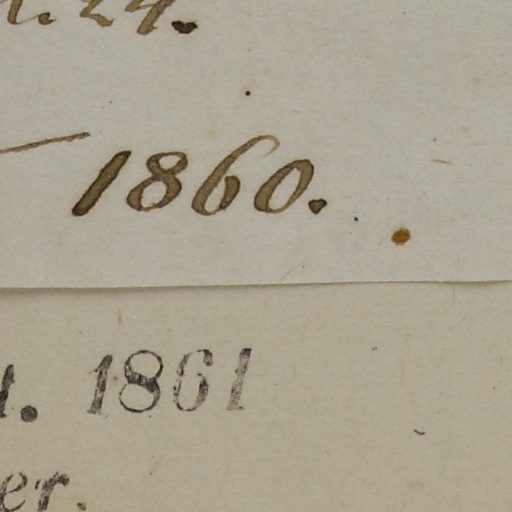 24.
1860.
1861
er.